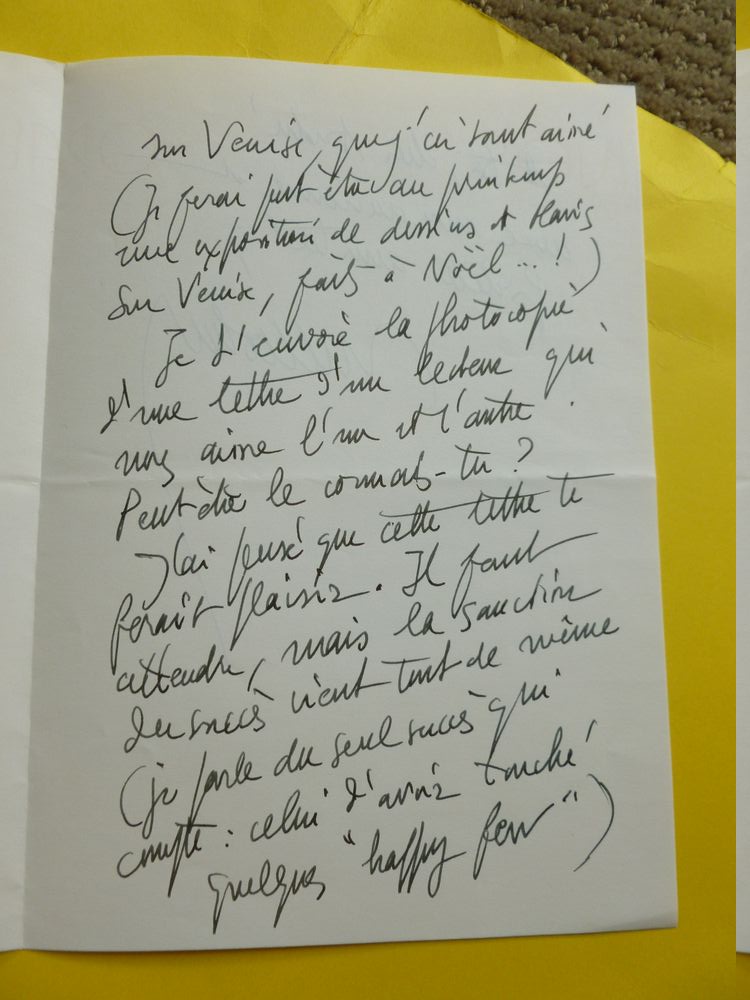 sur Venise, que j'ai tant aimé
(Je ferai peut-être au printemps
une exposition de dessins et lavis
sur Venise, faits à Noël...!)
Je t'envoie la photocopie
d'une lettre d'un lecteur qui
nous aime l'un et l'autre.
Peut-être le connais-tu ?
J'ai pensé que cette lettre te
ferait plaisir. Il faut
attendre, mais la sanction
du succès vient tout de même
(je parle du seul succès qui
compte : celui d'avoir touché
quelques "happy few")